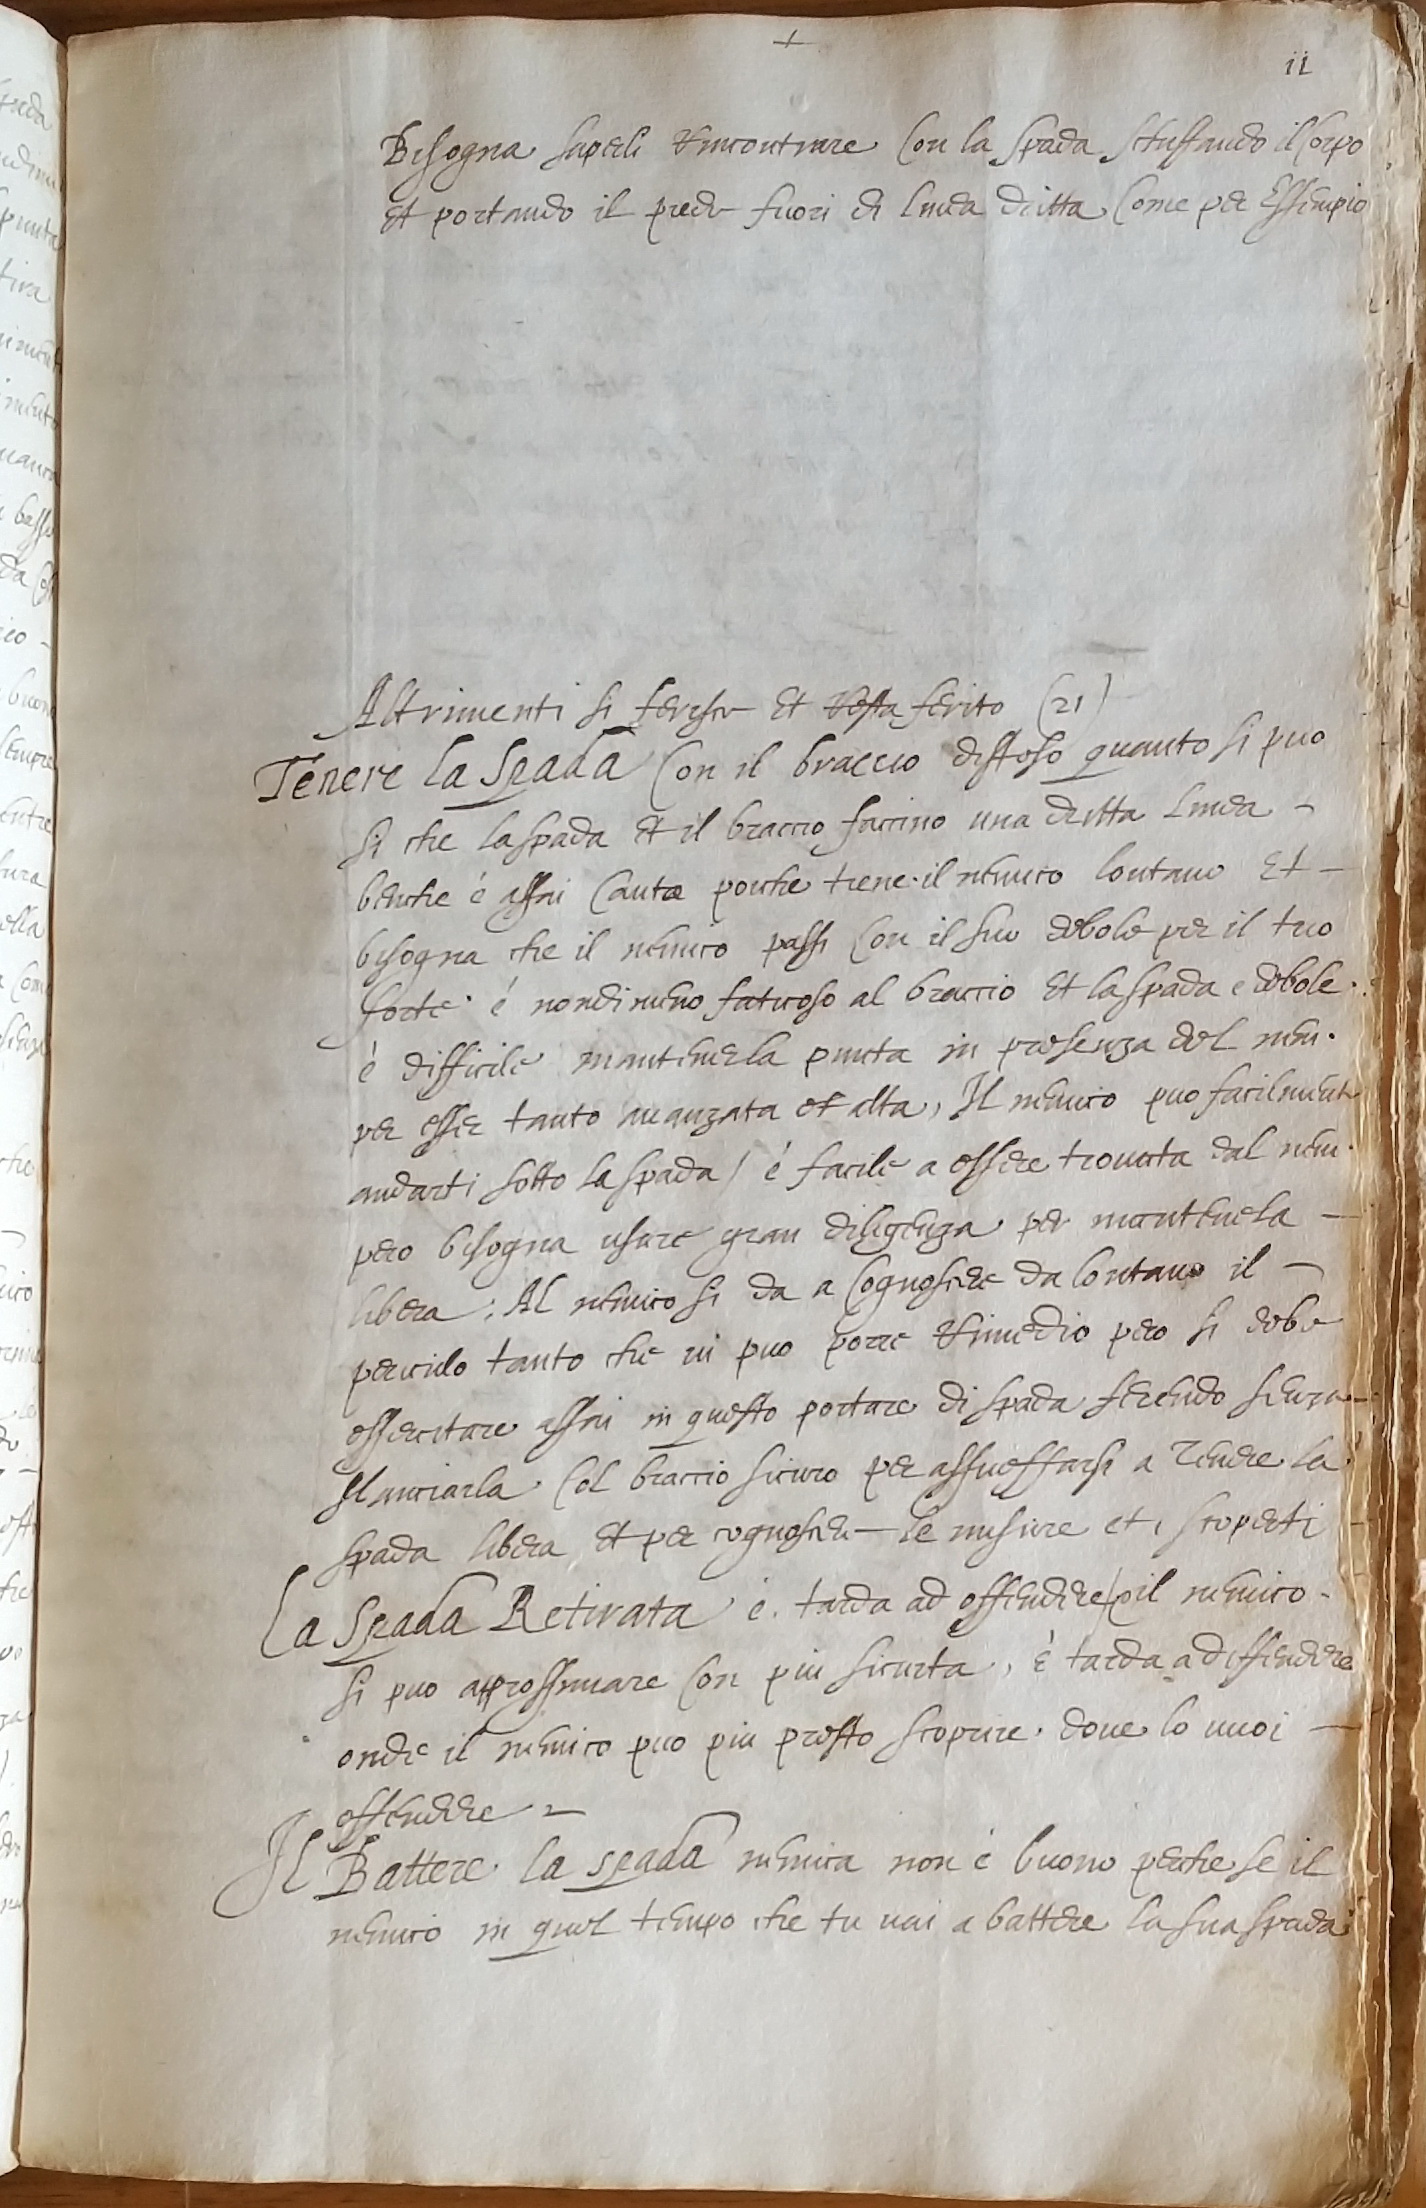 11
Bisogna saperli rincontrare con la spada schiffando il corpo
et portando il piede fuori di linea diitta come per essempio
Altrimenti si ferisse et resta ferito (21)
Tenere la spada con il braccio disteso quanto si puo
si che la spada et il braccio faccino una diitta linea –
benche è assai cauta poiche tiene il nemico lontano et –
bisogna che il nemico passi con il suo debole per il tuo
forte è nondimeno faticoso al braccio et la spada e debole.
è difficile mantener la punta in presenza del nem.
per esser tanto auanzata et alta, Il nemico puo facilmente
andarti sotto la spada / è facile a essere trouata dal nem.
pero bisogna usare gran diligenza per mantenela –
libera, Al nemico si da a cognoscere da lontano il –
pericolo tanto che ui puo porre rimedio pero si debe
essercitare assai in questo portare di spada ferendo senza
slanciarla col braccio sicuro per assueffarsi a tenere la
spada libera et per cognoscer – le misure et i scoperti
La spada Retirata è tarda ad offendere / il nemico
si puo approssimare con piu sicurta, è tarda a diffendere
onde il nemico puo piu presto scoprire doue lo uuoi –
offendere –
Il Battere la spada nemica non è buono perche se il
nemico in quel tempo che tu uai a battere la sua spada